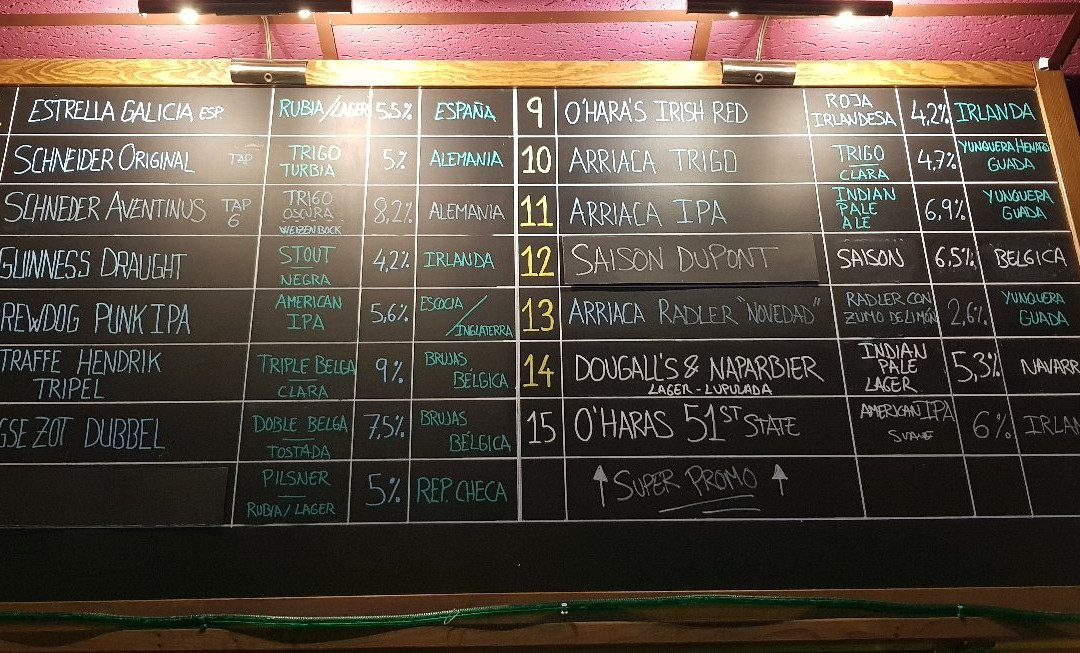 ESTRELLA GALICIA ESP. RUBIA/LAGER 5,5% ESPAÑA
SCHNEIDER ORIGINAL TAP TRIGO TURBIA 5% ALEMANIA
SCHNEDER AVENTINUS TAP 6 TRIGO OSCURA WEIZENBOCK 8,2% ALEMANIA
GUINNESS DRAUGHT STOUT NEGRA 4,2% IRLANDA
REWDOG PUNK IPA AMERICAN IPA 5,6% ESCOCIA/INGLATERRA
TRAFFE HENDRIK TRIPEL TRIPLE BELGA CLARA 9% BRUJAS BÉLGICA
GSE ZOT DUBBEL DOBLE BELGA TOSTADA 7,5% BRUJAS BÉLGICA
PILSNER RUBIA/LAGER 5% REP. CHECA
9 O'HARA'S IRISH RED ROJA IRLANDESA 4,2% IRLANDA
10 ARRIACA TRIGO TRIGO CLARA 4,7% YUNQUERA HENARES GUADA
11 ARRIACA IPA INDIAN PALE ALE 6,9% YUNQUERA GUADA
12 SAISON DUPONT SAISON 6,5% BELGICA
13 ARRIACA RADLER "NOVEDAD" RADLER CON ZUMO DE LIMÓN 2,6% YUNQUERA GUADA
14 DOUGALL'S & NAPARBIER LAGER-LUPULADA INDIAN PALE LAGER 5,3% NAVARR
15 O'HARAS 51ST STATE AMERICAN IPA SUAVE 6% IRLAN
↑ SUPER PROMO ↑